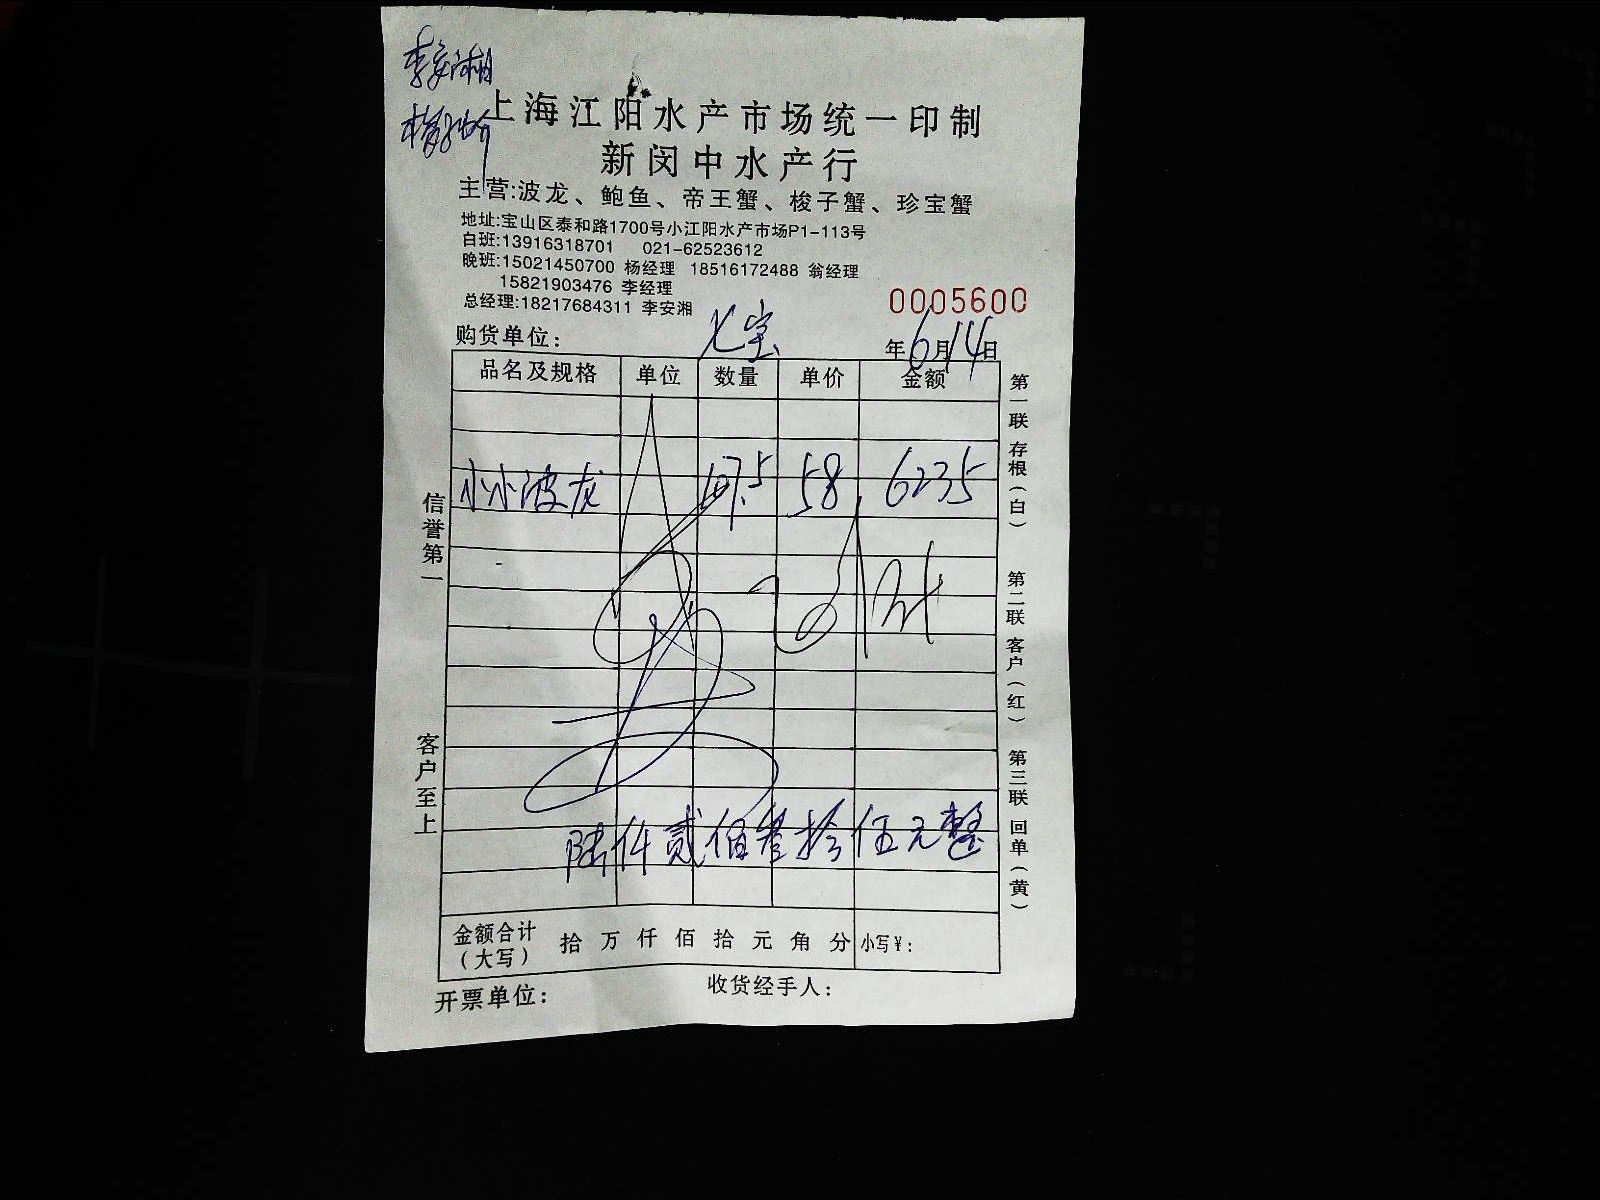 李安湘
上海江阳水产市场统一印制
新闵中水产行
主营:波龙、鲍鱼、帝王蟹、梭子蟹、珍宝蟹
地址:宝山区泰和路1700号小江阳水产市场P1-113号
白班:13916318701 021-62523612
晚班:15021450700 杨经理 18516172488 翁经理
15821903476 李经理
总经理:18217684311 李安湘
0005600
购货单位: 七宝 年6月14日
品名及规格 单位 数量 单价 金额
小小波龙 107.5 58 6235
陆仟贰佰叁拾伍元整
金额合计(大写) 拾 万 仟 佰 拾 元 角 分 小写¥:
开票单位: 收货经手人:
信誉第一
客户至上
第一联 存根(白)
第二联 客户(红)
第三联 回单(黄)